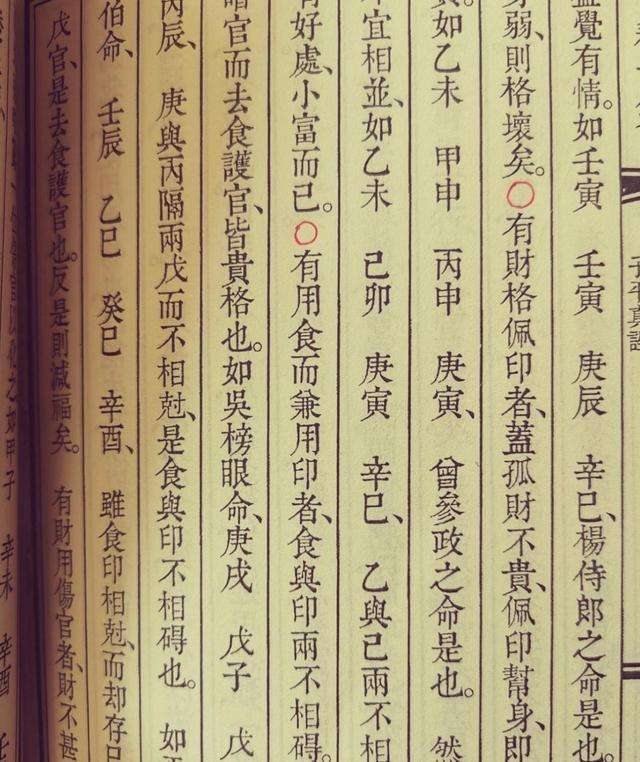 蓋覺有情。如壬寅　壬寅　庚辰　辛巳、楊侍郎之命是也。
身弱、則格壞矣。○有財格佩印者、蓋孤財不貴、佩印幫身、即
如乙未　甲申　丙申　庚寅、曾參政之命是也。然
不宜相並、如乙未　己卯　庚寅　辛巳、乙與己兩不相
有好處、小富而已。○有用食而兼用印者、食與印兩不相碍。
暗官而去食護官、皆貴格也。如吳榜眼命、庚戌　戊子　戊
丙辰、庚與丙隔兩戊而不相尅、是食與印不相碍也。如
伯命、壬辰　乙巳　癸巳　辛酉、雖食印相尅、而却存
戊官、是去食護官也。反是則減福矣。有財用傷官者、財不甚
之如甲子　辛未　辛酉　壬
子平真詮